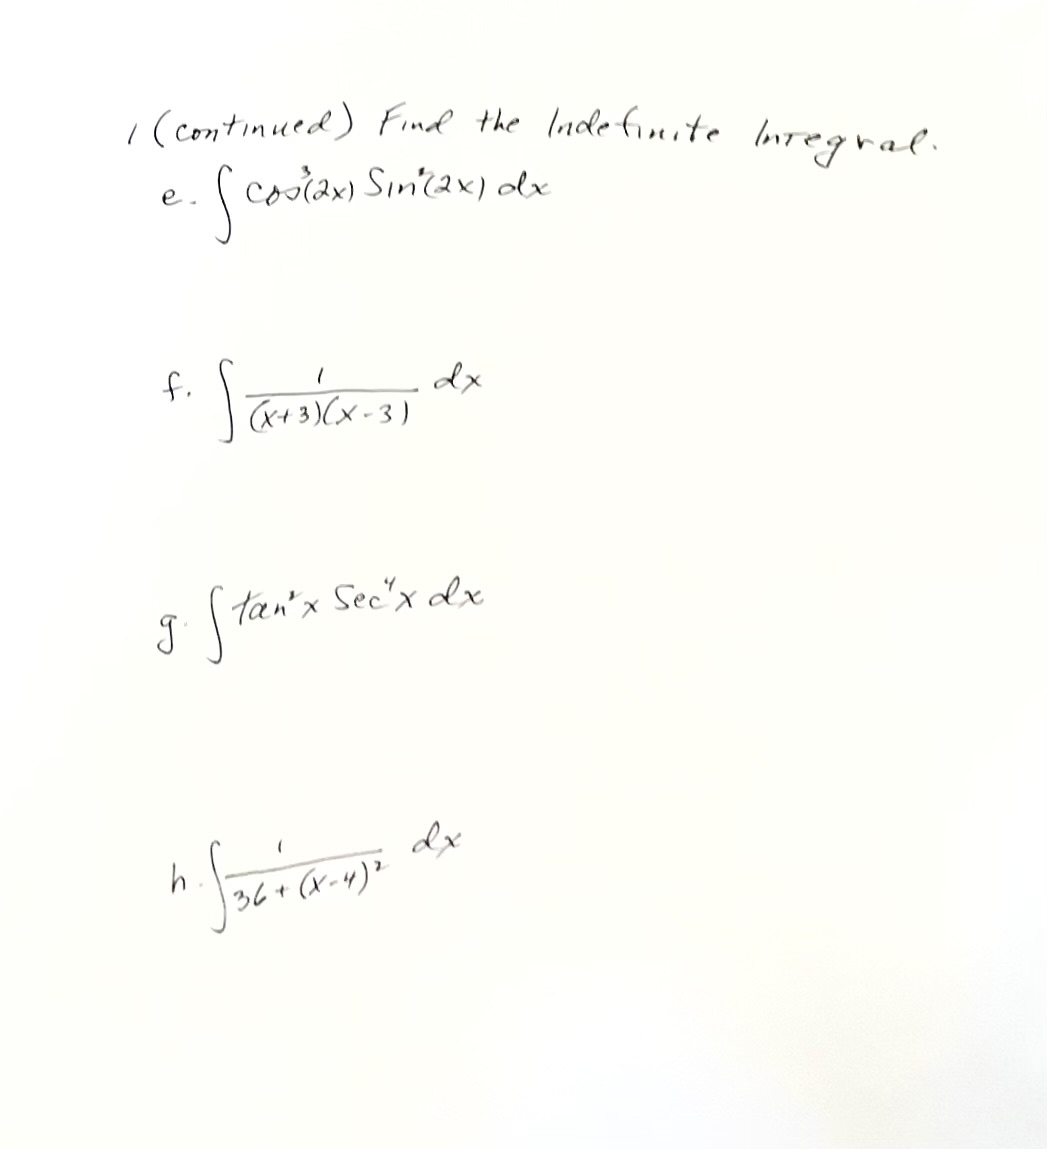 1 (continued) Find the Indefinite Integral.
e. ∫ cos³(2x) Sin²(2x) dx
f. ∫ 1/((x+3)(x-3)) dx
g. ∫ tan²x Sec⁴x dx
h. ∫ 1/(36+(x-4)²) dx